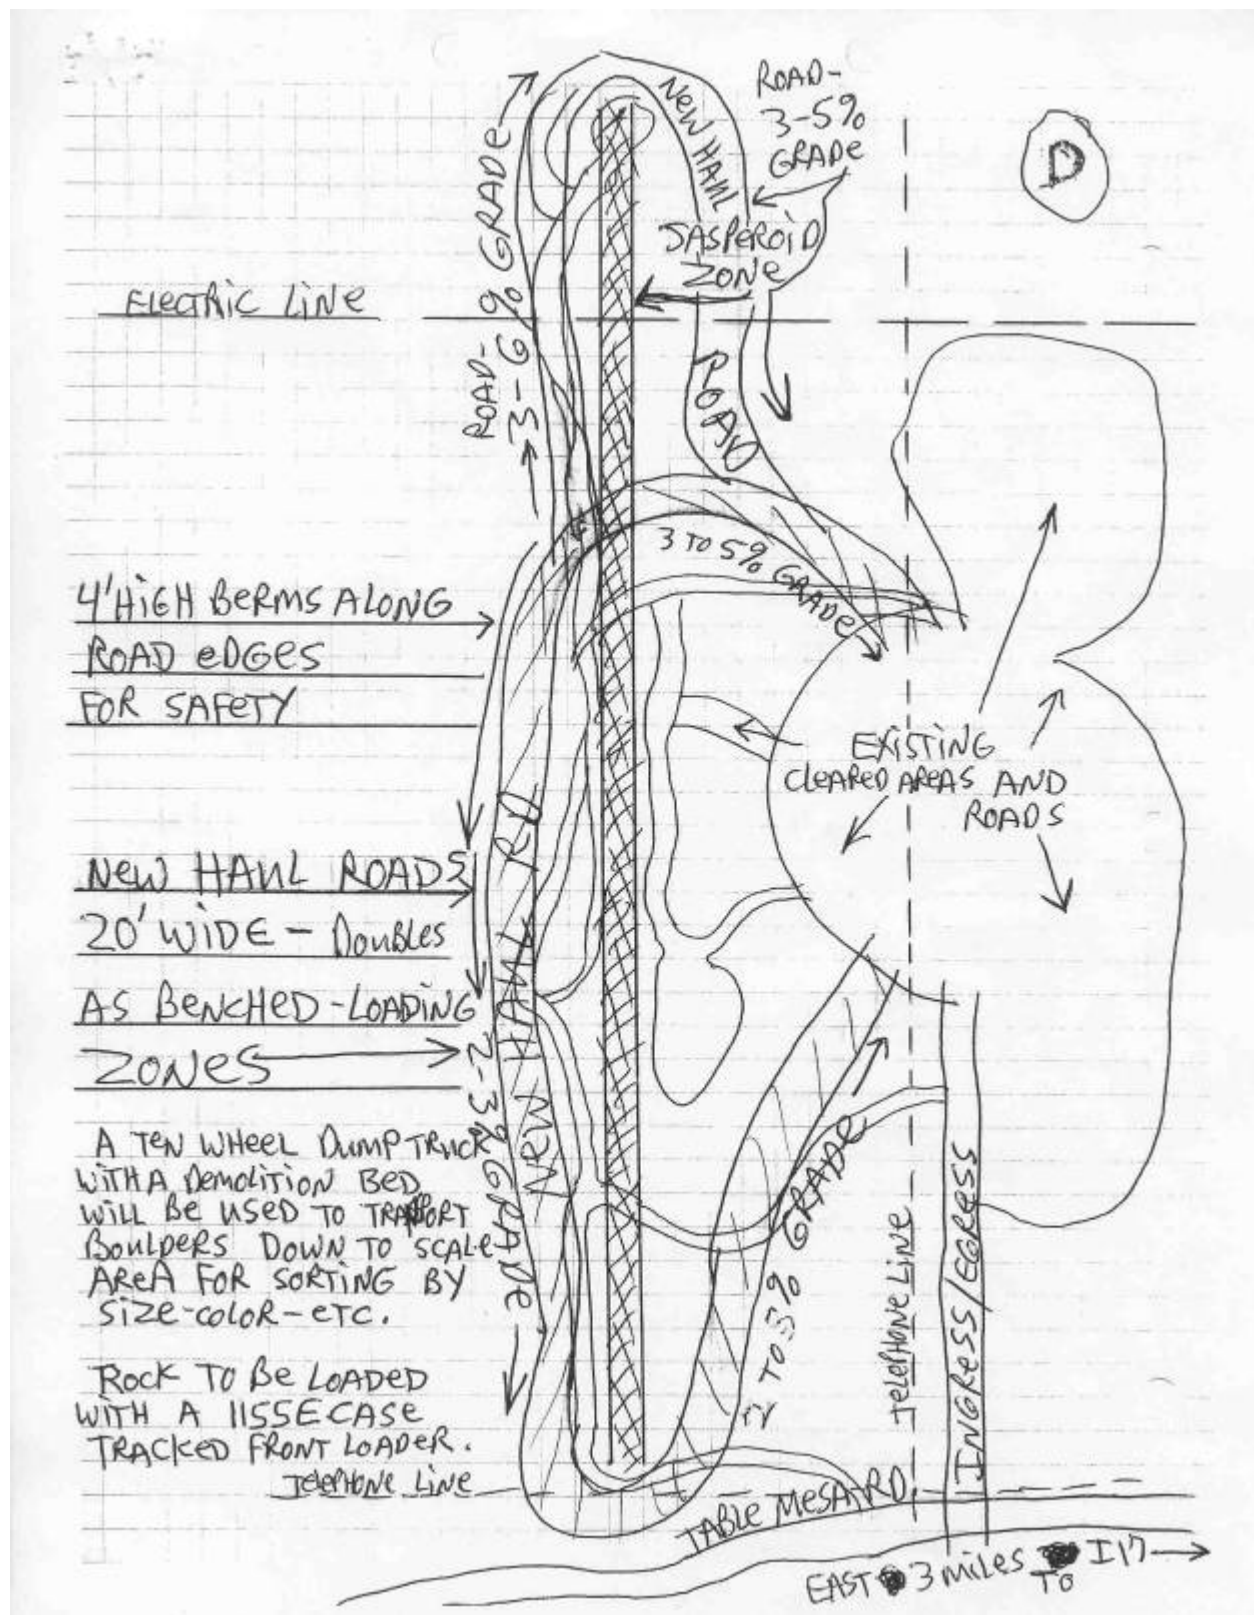 ROAD-
3-5%
GRADE
D
NEW HAUL
ROAD
JASPEROID
ZONE
ELECTRIC LINE
ROAD-
3-6% GRADE
3 TO 5% GRADE
4' HIGH BERMS ALONG
ROAD EDGES
FOR SAFETY
EXISTING
CLEARED AREAS AND
ROADS
NEW HAUL ROADS
20' WIDE - DOUBLES
AS BENCHED-LOADING
ZONES
NEW HAUL RD
2-3% GRADE
A TEN WHEEL DUMP TRUCK
WITH A DEMOLITION BED
WILL BE USED TO TRANSPORT
BOULDERS DOWN TO SCALE
AREA FOR SORTING BY
SIZE-COLOR-ETC.
ROCK TO BE LOADED
WITH A 1155E CASE
TRACKED FRONT LOADER.
TELEPHONE LINE
2 TO 5% GRADE
TELEPHONE LINE
INGRESS/EGRESS
TABLE MESA RD.
EAST 3 MILES TO I17